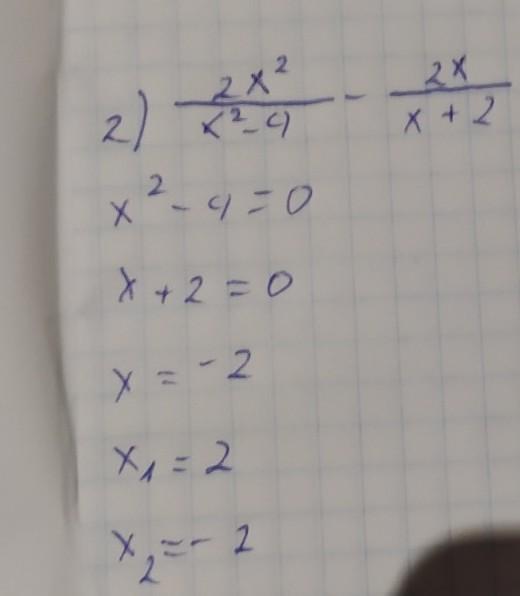 2) 2x²/(x²-4) - 2x/(x+2)
x²-4=0
x+2=0
x=-2
x₁=2
x₂=-2